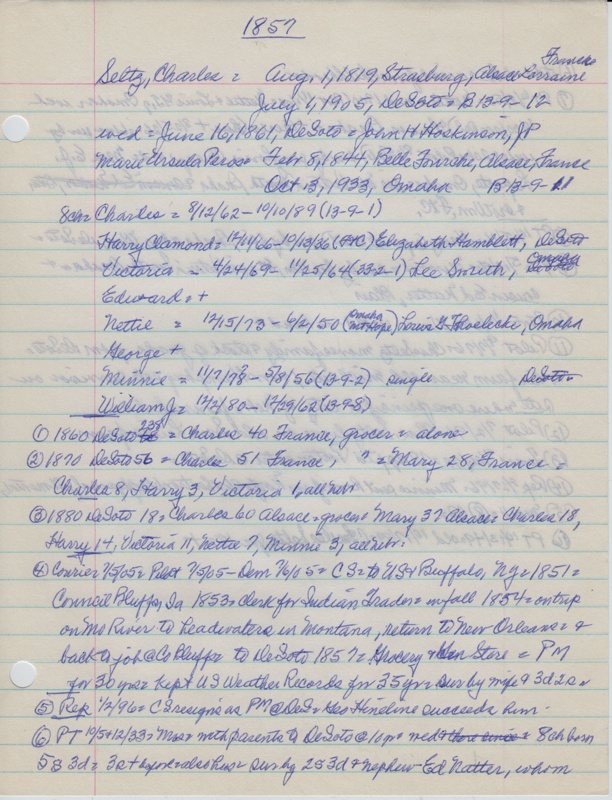 1857
France
Seltz, Charles = Aug, 1, 1819, Strasburg, Alsace Lorraine
July 1, 1905, DeSoto = B 13-9-12
wed = June 16, 1861, DeSoto = John H Hoskinson, JP
Marie Ursula Peross Feb 8, 1844, Belle Fourche, Alsace, France
Oct 3, 1933, Omaha B 13-9-11
8ch = Charles = 8/12/62 - 10/10/89 (13-9-1)
Harry Clamond = 12/11/66 - 10/13/36 (F+C) Elizabeth Hamblett, DeSoto
Victoria = 4/24/69 - 11/25/64 (23-2-1) Lee Smith, Omaha DeSoto
Edward = +
Nettie = 12/15/73 - 6/2/50 (Omaha Mt Hope) Louis G Thoelecke, Omaha
George +
Minnie = 11/7/78 - 5/8/56 (13-9-2) single DeSoto
William J = 12/2/80 - 12/29/62 (13-9-8)
① 1860 DeSoto 238 = Charles 40 France, grocer = alone
② 1870 DeSoto 56 = Charles 51 France, " = Mary 28, France =
Charles 8, Harry 3, Victoria 1, all Neb
③ 1880 DeSoto 18 = Charles 60 Alsace = grocer = Mary 37 Alsace = Charles 18,
Harry 14, Victoria 11, Nettie 7, Minnie 3, all Neb =
④ Courier 7/5/05 = Pilot 7/5/05 - Dem 7/6/05 = CS = to US + Buffalo, NY = 1851 =
Council Bluffs, Ia 1853 = clerk for Indian Trader = in fall 1854 = on trip
on Mo River to headwaters in Montana, return to New Orleans = +
back to job @ Co Bluffs to DeSoto 1857 = Grocery + Gen Store = PM
for 30 yrs = kept US Weather Records for 35 yr = sur by wife + 3d 2s =
⑤ Rep 12/96 = CS resigns as PM @ DeS = Geo Hineline succeeds him =
⑥ PT 10/5+12/33 = Mrs = with parents to DeSoto @ 10 yr = wed + = 8ch born
5s 3d = 3s + hus = also hus = sur by 2s 3d + nephew Ed Natter, whom